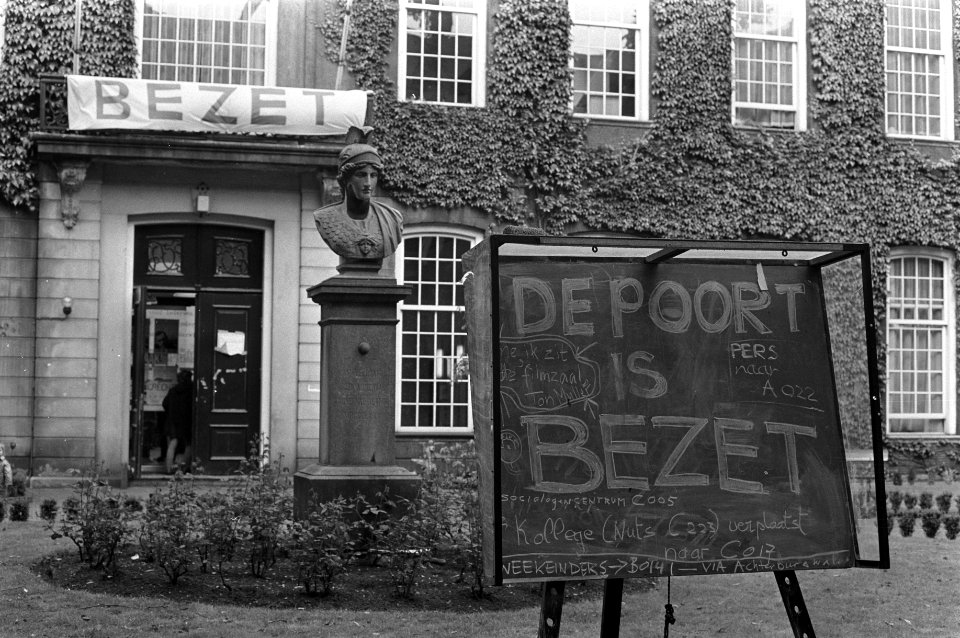 BEZET
DE POORT
IS
BEZET
PERS
naar
A 022
ik zit
filmzaal
sociologencentrum C005
Kollege (Nuts C223) verplaatst
naar C017
WEEKEINDERS → B014 ← VIA Achterburgwal